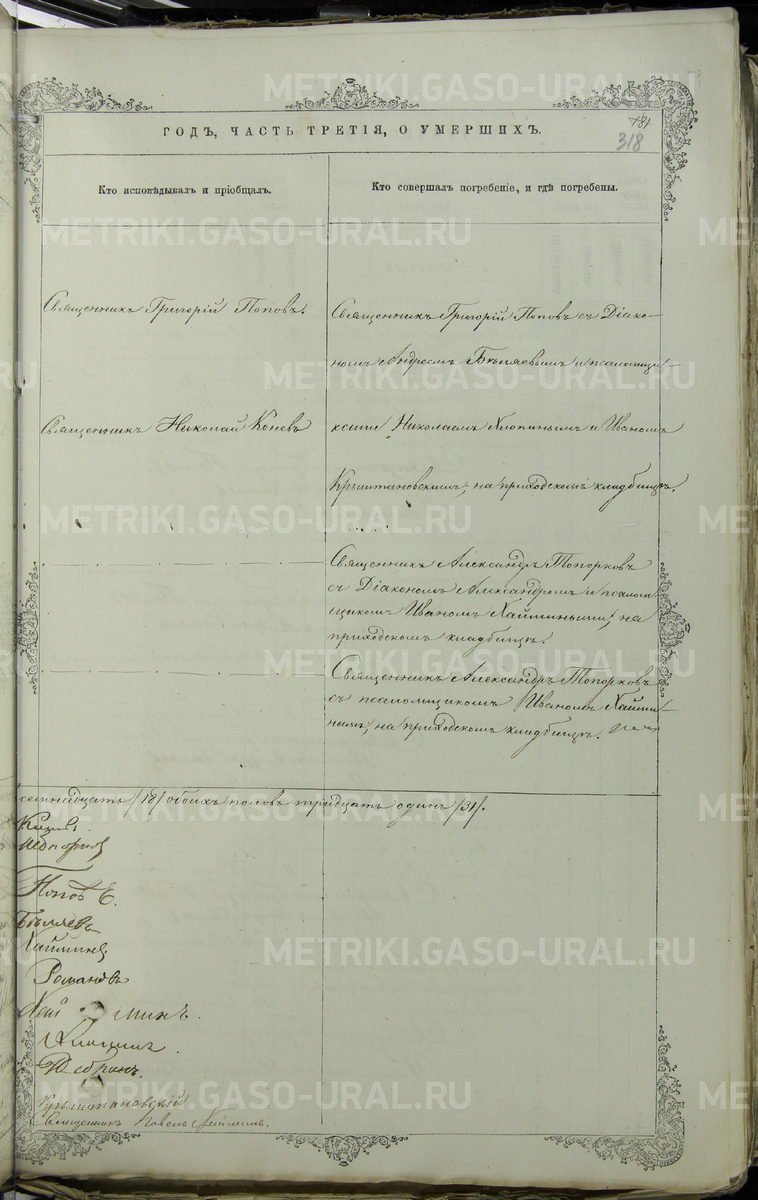 ГОДЪ, ЧАСТЬ ТРЕТІЯ, О УМЕРШИХЪ.
181
318
Кто исповѣдывалъ и пріобщалъ.
Кто совершалъ погребеніе, и гдѣ погребены.
Священникъ Григорій Поповъ.
Священникъ Николай Коневъ
Священникъ Григорій Поповъ съ Діако-
номъ Андреемъ Бѣляевымъ и псаломщи-
ками Николаемъ Хлопинымъ и Иваномъ
Крыштановскимъ; на приходскомъ кладбищѣ.
Священникъ Александръ Топорковъ
съ Діакономъ Александромъ и псалом-
щикомъ Иваномъ Хайминымъ; на
приходскомъ кладбищѣ.
Священникъ Александръ Топорковъ
съ псаломщикомъ Иваномъ Хайми-
нымъ; на приходскомъ кладбищѣ.
семнадцать /18/ обоихъ половъ тридцать одинъ /31/.
Поповъ
Бѣляевъ
Хайминъ
Романовъ
Крыштановскій
Священникъ Павелъ
METRIKI.GASO-URAL.RU